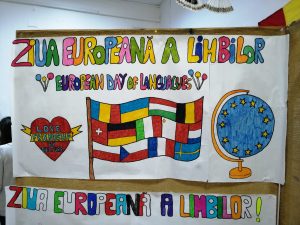 ZIUA EUROPEANĂ A LIMBILOR
EUROPEAN DAY OF LANGUAGES
LOVE
ZIUA EUROPEANĂ A LIMBILOR!